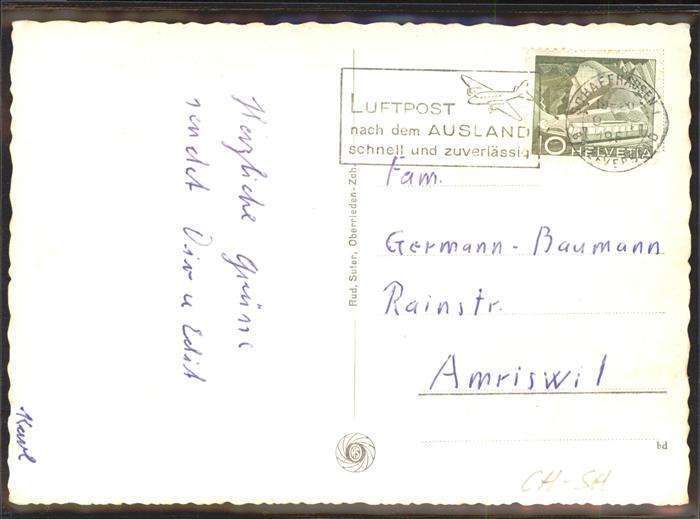 Herzliche Grüsse
sendet Dir u Edit
Karl
Rud. Suter, Oberrieden-Zch
LUFTPOST
nach dem AUSLAND
schnell und zuverlässig
SCHAFFHAUSEN
10 HELVETIA
Fam.
Germann-Baumann
Rainstr.
Amriswil
bd
CH-SH